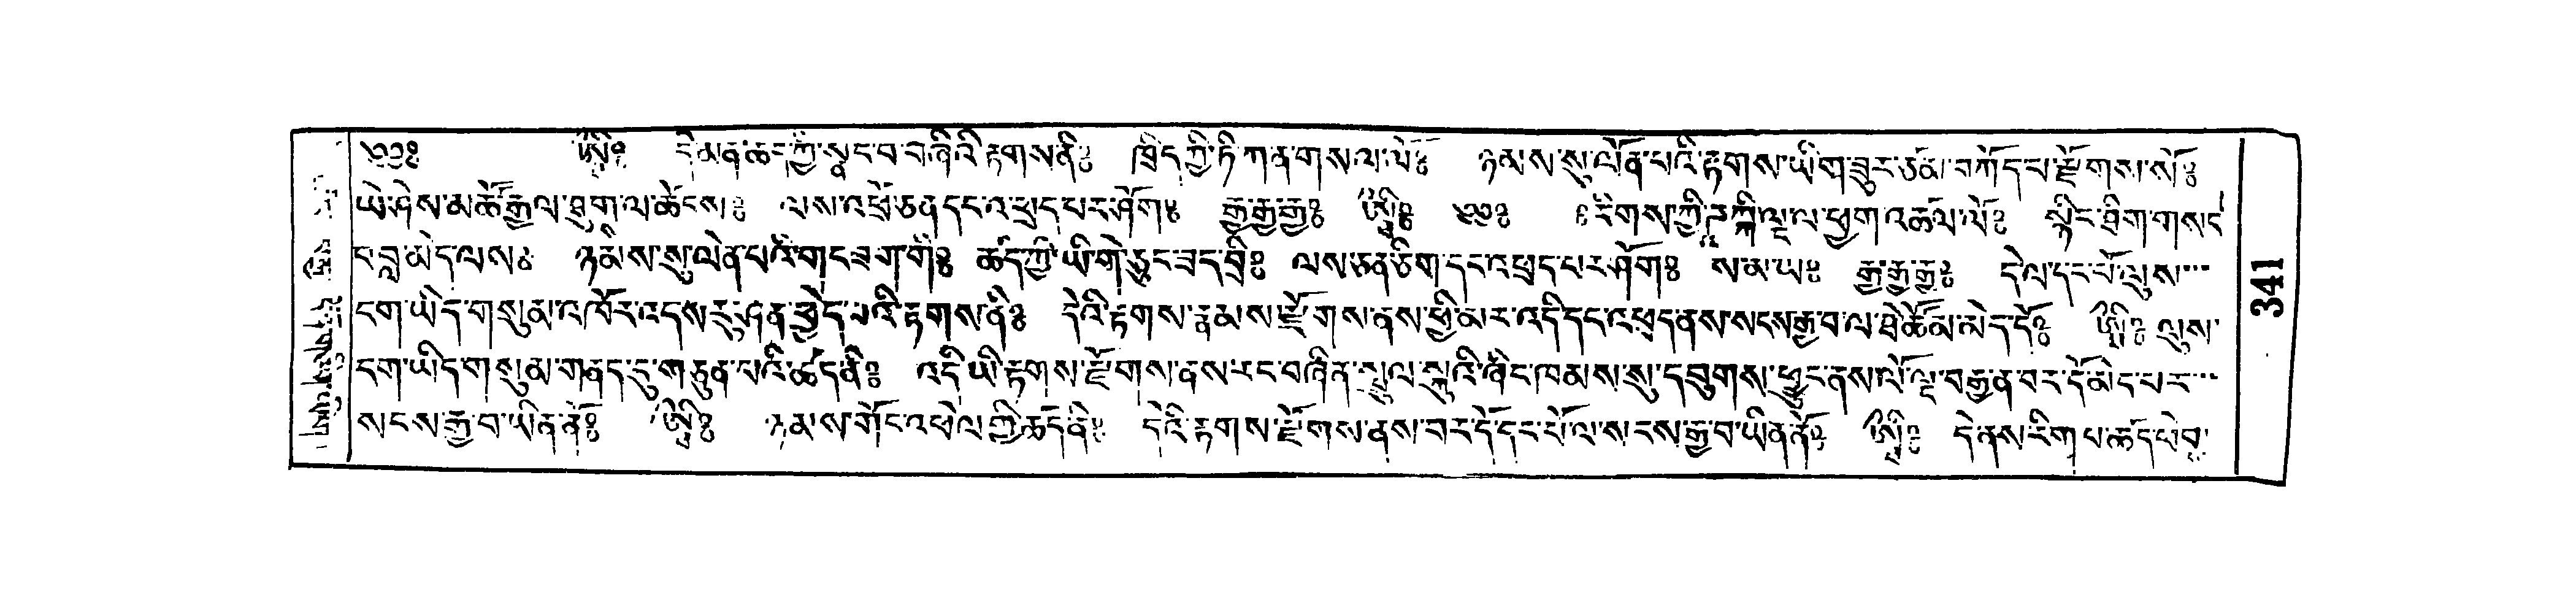 ༄༅༔ ༀ༔ དེ་མན་ཆད་ཀྱི་སྣང་བ་བཞིའི་རྟགས་ནི༔ ཁྲིད་ཀྱི་ཏི་ཀ་ན་གསལ་ལོ༔ ཉམས་སུ་ལོན་པའི་རྟགས་ཡིག་ཟུར་ཙམ་བཀོད་པ་རྫོགས་སོ༔
ཡེ་ཤེས་མཚོ་རྒྱལ་ཐུག་ལ་ཚོངས༔ ལས་འཕྲོ་ཅན་དང་འཕྲད་པར་ཤོག༔ རྒྱ་རྒྱ་རྒྱ༔ ༀ༔ ༄༅༔ རིགས་ཀྱི་ལ་ཕྱག་འཚལ་ལོ༔ སྙིང་ཐིག་གསང
ང་བླ་མེད་ལས༔ ཉམས་སུ་ལེན་པའི་གང་ཟག་གི༔ ཚད་ཀྱི་ཡི་གེ་ཅུང་ཟད་བྲི༔ ལས་ཅན་ཅིག་དང་འཕྲད་པར་ཤོག༔ ས་མ་ཡ༔ རྒྱ་རྒྱ་རྒྱ༔ དེ་ལ་དང་པོ་ལུས་
ངག་ཡིད་གསུམ་འཁོར་འདས་རུ་ཤན་ཕྱེད་པའི་རྟགས་ནི༔ དེའི་རྟགས་རྣམས་རྫོགས་ནས་ཕྱི་མར་འདི་དང་འཕྲད་ནས་སངས་རྒྱ་བ་ལ་ཐེ་ཚོམ་མེད་དོ༔ ༀ༔ ལུས་
ངག་ཡིད་གསུམ་གནད་དུ་གཅུན་པའི་ཚད་ནི༔ འདི་ཡི་རྟགས་རྫོགས་ནས་རང་བཞིན་སྤྲུལ་སྐུའི་ཞིང་ཁམས་སུ་དབུགས་ཕྱུང་ནས་ལོ་ལྔ་བརྒྱ་ན་བར་དོ་མེད་པར་
སངས་རྒྱ་བ་ཡིན་ནོ༔ ༀ༔ ཉམས་གོང་འཕེལ་ཀྱི་ཚད་ནི༔ དེའི་རྟགས་རྫོགས་ནས་བར་དོ་དང་པོ་ལ་སངས་རྒྱ་བ་ཡིན་ནོ༔ ༀ༔ དེ་ནས་རིག་པ་ཚད་ཕེབ་